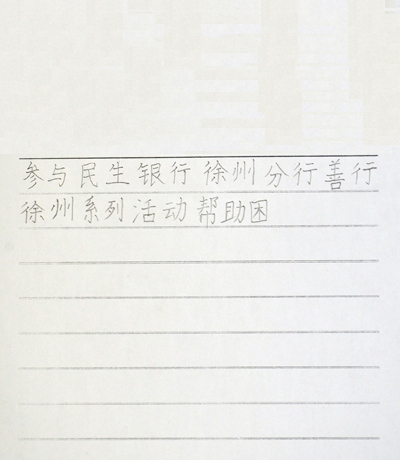 参与民生银行徐州分行善行
徐州系列活动帮助困